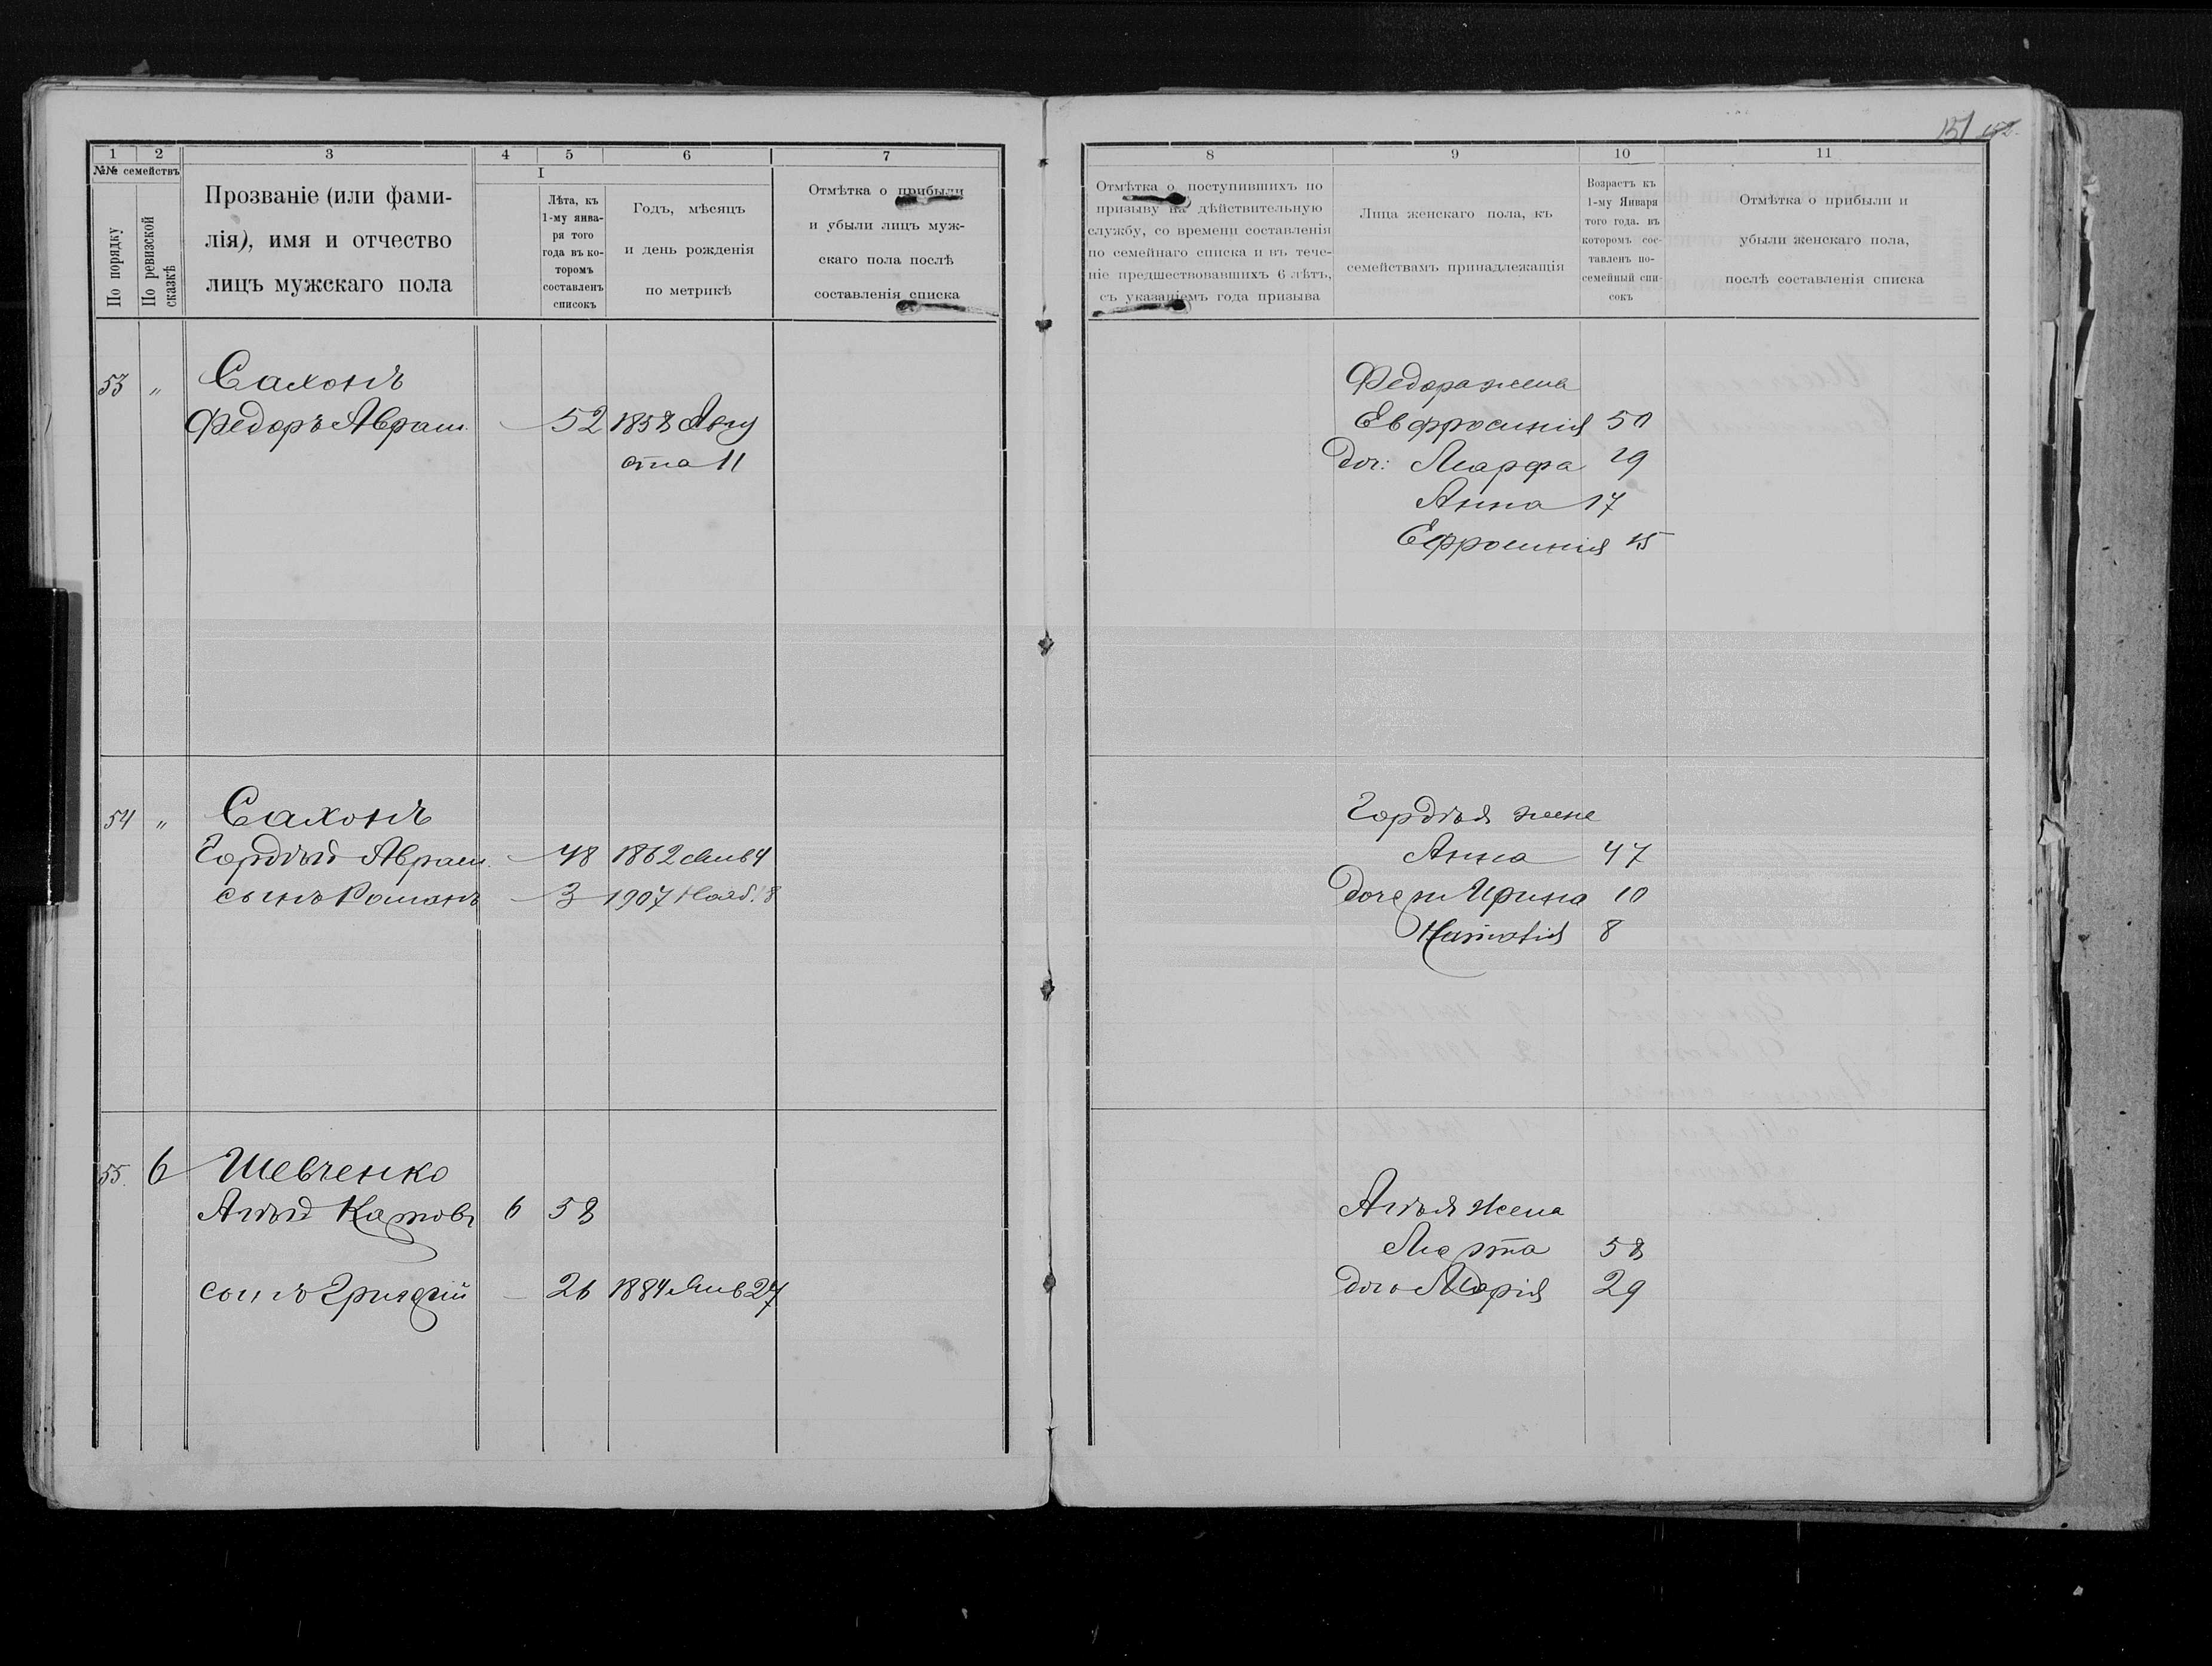 151
1 2 3 4 5 6 7
№№ семействъ
По порядку
По ревизской сказкѣ
Прозваніе (или фами-
лія), имя и отчество
лицъ мужскаго пола
I
Лѣта, къ
1-му янва-
ря того
года въ ко-
торомъ
составленъ
списокъ
Годъ, мѣсяцъ
и день рожденія
по метрикѣ
Отмѣтка о прибыли
и убыли лицъ муж-
скаго пола послѣ
составленія списка
53 „ Сахонъ
Федоръ Аврам. 52 1858 Авгу
ста 11
54 „ Сахонъ
Гордѣй Аврам. 48 1862 Янв 4
сынъ Романъ 3 1907 Нояб. 8
55. 6 Шевченко
6 58
сынъ 26 1884 Янв 27
8 9 10 11
Отмѣтка о поступившихъ по
призыву на дѣйствительную
службу, со времени составленія
по семейнаго списка и въ тече-
ніе предшествовавшихъ 6 лѣтъ,
съ указаніемъ года призыва
Лица женскаго пола, къ
семействамъ принадлежащія
Возрастъ къ
1-му Января
того года. въ
которомъ сос-
тавленъ по-
семейный спи-
сокъ
Отмѣтка о прибыли и
убыли женскаго пола,
послѣ составленія списка
Федора жена
Евфросинія 50
доч: Марфа 29
Анна 17
Ефросинія 15
Гордѣя жена
Анна 47
дочери Ирина 10
Наталія 8
жена
Марта 58
дочь Марія 29